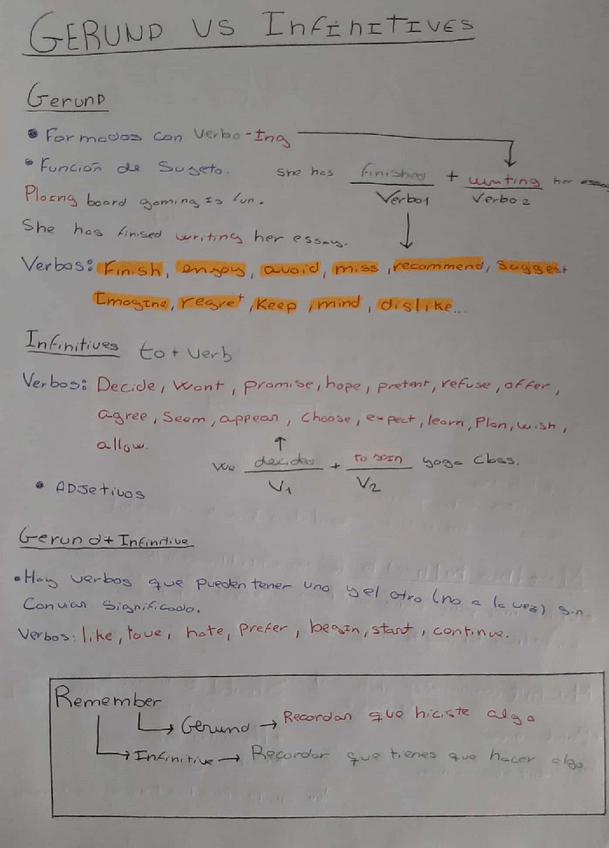 GERUND VS INFINITIVES
Gerund
• Formados con verbo-Ing
• Función de Sugeto.
She has finished + writing her essay
Verbo1 Verbo2
Plaing board gaming Is fun.
She has finised writing her essay.
Verbos: Finish, enjoy, avoid, miss, recommend, suggest
Imagine, regret, Keep, mind, dislike...
Infinitives to + verb
Verbos: Decide, want, promise, hope, pretent, refuse, offer,
agree, Seem, appear, choose, expect, learn, Plan, wish,
allow.
We decided + to join yoga class.
V1 V2
• ADJetivos
Gerund + Infinitive
• Hay verbos que pueden tener uno y el otro (no a la vez) sin
Conviar Significado.
Verbos: like, love, hate, prefer, begin, start, continue.
Remember
Gerund → Recordar que hiciste algo
Infinitive → Recordar que tienes que hacer algo.